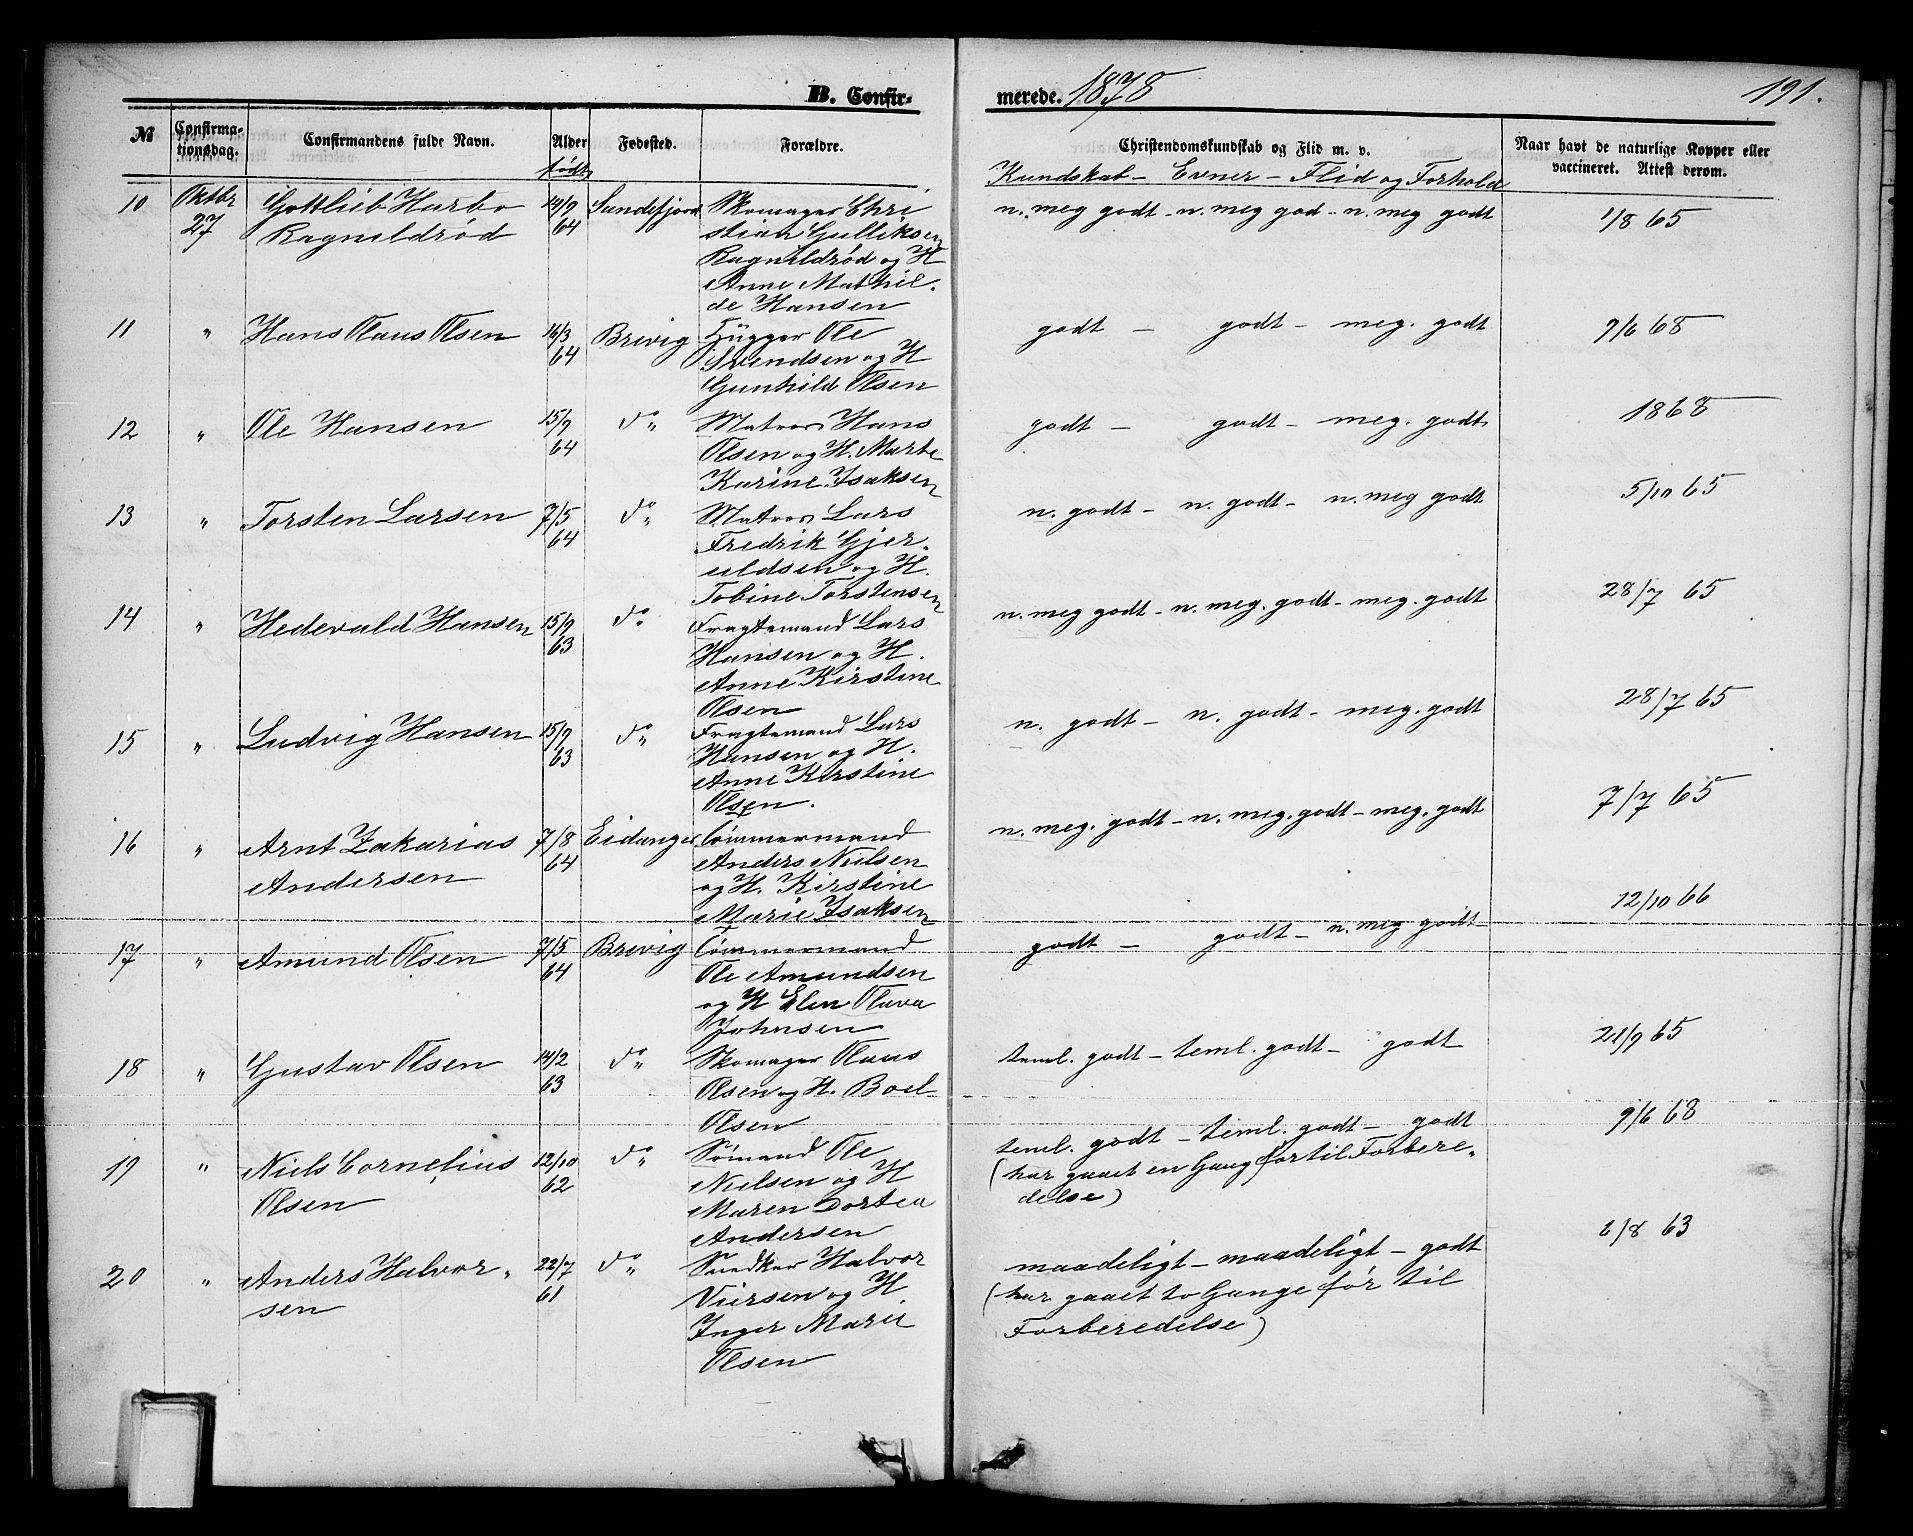 B. Confir-
merede. 1878
191.
№
Confirma-
tionsdag.
Confirmandens fulde Navn.
Alder
født
Fødested.
Forældre.
Christendomskundskab og Flid m. v.
Kundskab - Evner - Flid og Forhold
Naar havt de naturlige Kopper eller
vaccineret. Attest derom.
10 Oktbr 27 Gottlieb Harbo Ragnildrød 14/9 64 Sandefjord
Skomager Chri
stian Gulliksen
Ragnildrød og H
Anne Mathil.
de Hansen
n. meg godt - n. meg god - n. meg godt 1/8 65
11 " Hans Olaus Olsen 16/3 64 Brevig
Hügger Ole
Svendsen og H
Gunhild Olsen
godt - godt - meg. godt 9/6 68
12 " Ole Hansen 15/9 64 do
Matros Hans
Olsen og H. Marte
Karine Isaksen
godt - godt - meg. godt 1868
13 " Torsten Larsen 7/5 64 do
Matros Lars
Fredrik Gjer-
uldsen og H.
Tobine Torstensen
n. godt - n. godt - n. meg godt 5/10 65
14 " Hedevald Hansen 15/9 63 do
Fragtemand Lars
Hansen og H.
Anne Kirstine
Olsen
n. meg godt - n. meg. godt - meg. godt 28/7 65
15 " Ludvig Hansen 15/9 63 do
Fragtemand Lars
Hansen og H.
Anne Kirstine
Olsen.
n. godt - n. godt - meg. godt 28/7 65
16 " Arnt Zakarias
Andersen 7/8 64 Eidanger
Tömmermand
Anders Nielsen
og H. Kirstine
Marie Isaksen
n. meg. godt - n. meg. godt - meg. godt 7/7 65
17 " Amund Olsen 7/5 64 Brevig
Tömmermand
Ole Amundsen
og H Elen Olava
Johnsen
godt - godt - n. meg godt 12/10 66
18 " Gustav Olsen 14/2 63 do
Skomager Olaus
Olsen og H. Boel
Olsen
teml. godt - teml. godt - godt 21/9 65
19 " Niels Cornelius
Olsen 12/10 62 do
Sømand Ole
Nielsen og H
Maren Dortea
Andersen
teml. godt - teml. godt - godt 9/6 68
(har gaaet en Gang før til Forbere-
delse)
20 " Anders Halvor-
sen 22/7 61 do
Snedker Halvor
Viersen og H.
Inger Marie
Olsen
maadeligt - maadeligt - godt 6/8 63
(har gaaet to Gange før til
Forberedelse)